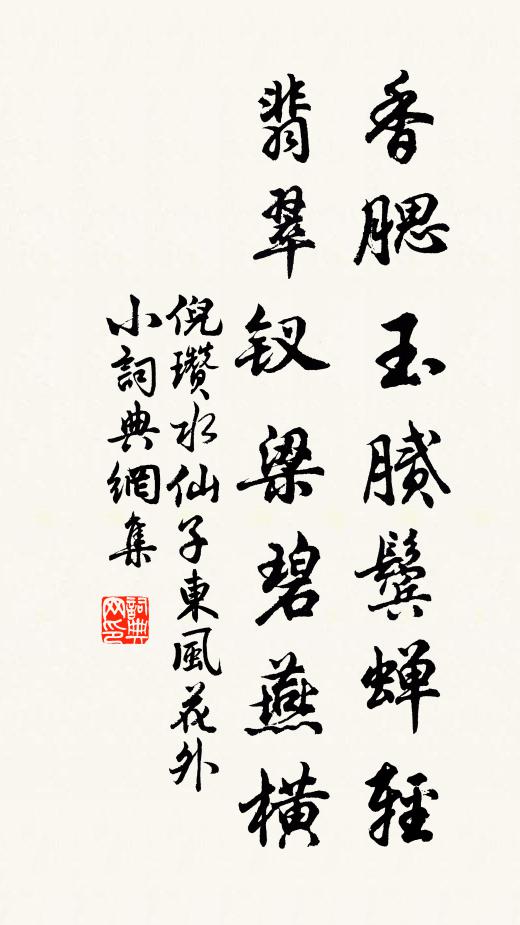 香腮玉腻鬓蝉轻
翡翠钗梁碧燕横
倪瓒水仙子東風花外
小詞典網集
詞典
网印